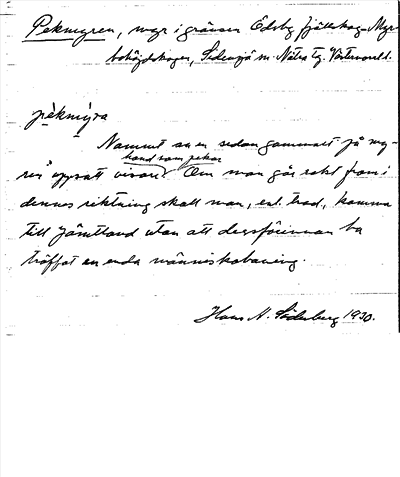 Pekmyren, myr i gränsen Edsby fjällskog - Myr-
bohöjdskogen, Sidensjö sn. Nätra tg. Västernorrl.
pèkmýra
Namnet av en sedan gammalt på my-
hand som pekar
ren uppsatt visare. Om man går rakt fram i
dennes riktning skall man, enl. trad., komma
till Jämtland utan att dessförinnan ha
träffat en enda människoboning.
Hans N. Söderberg 1930.